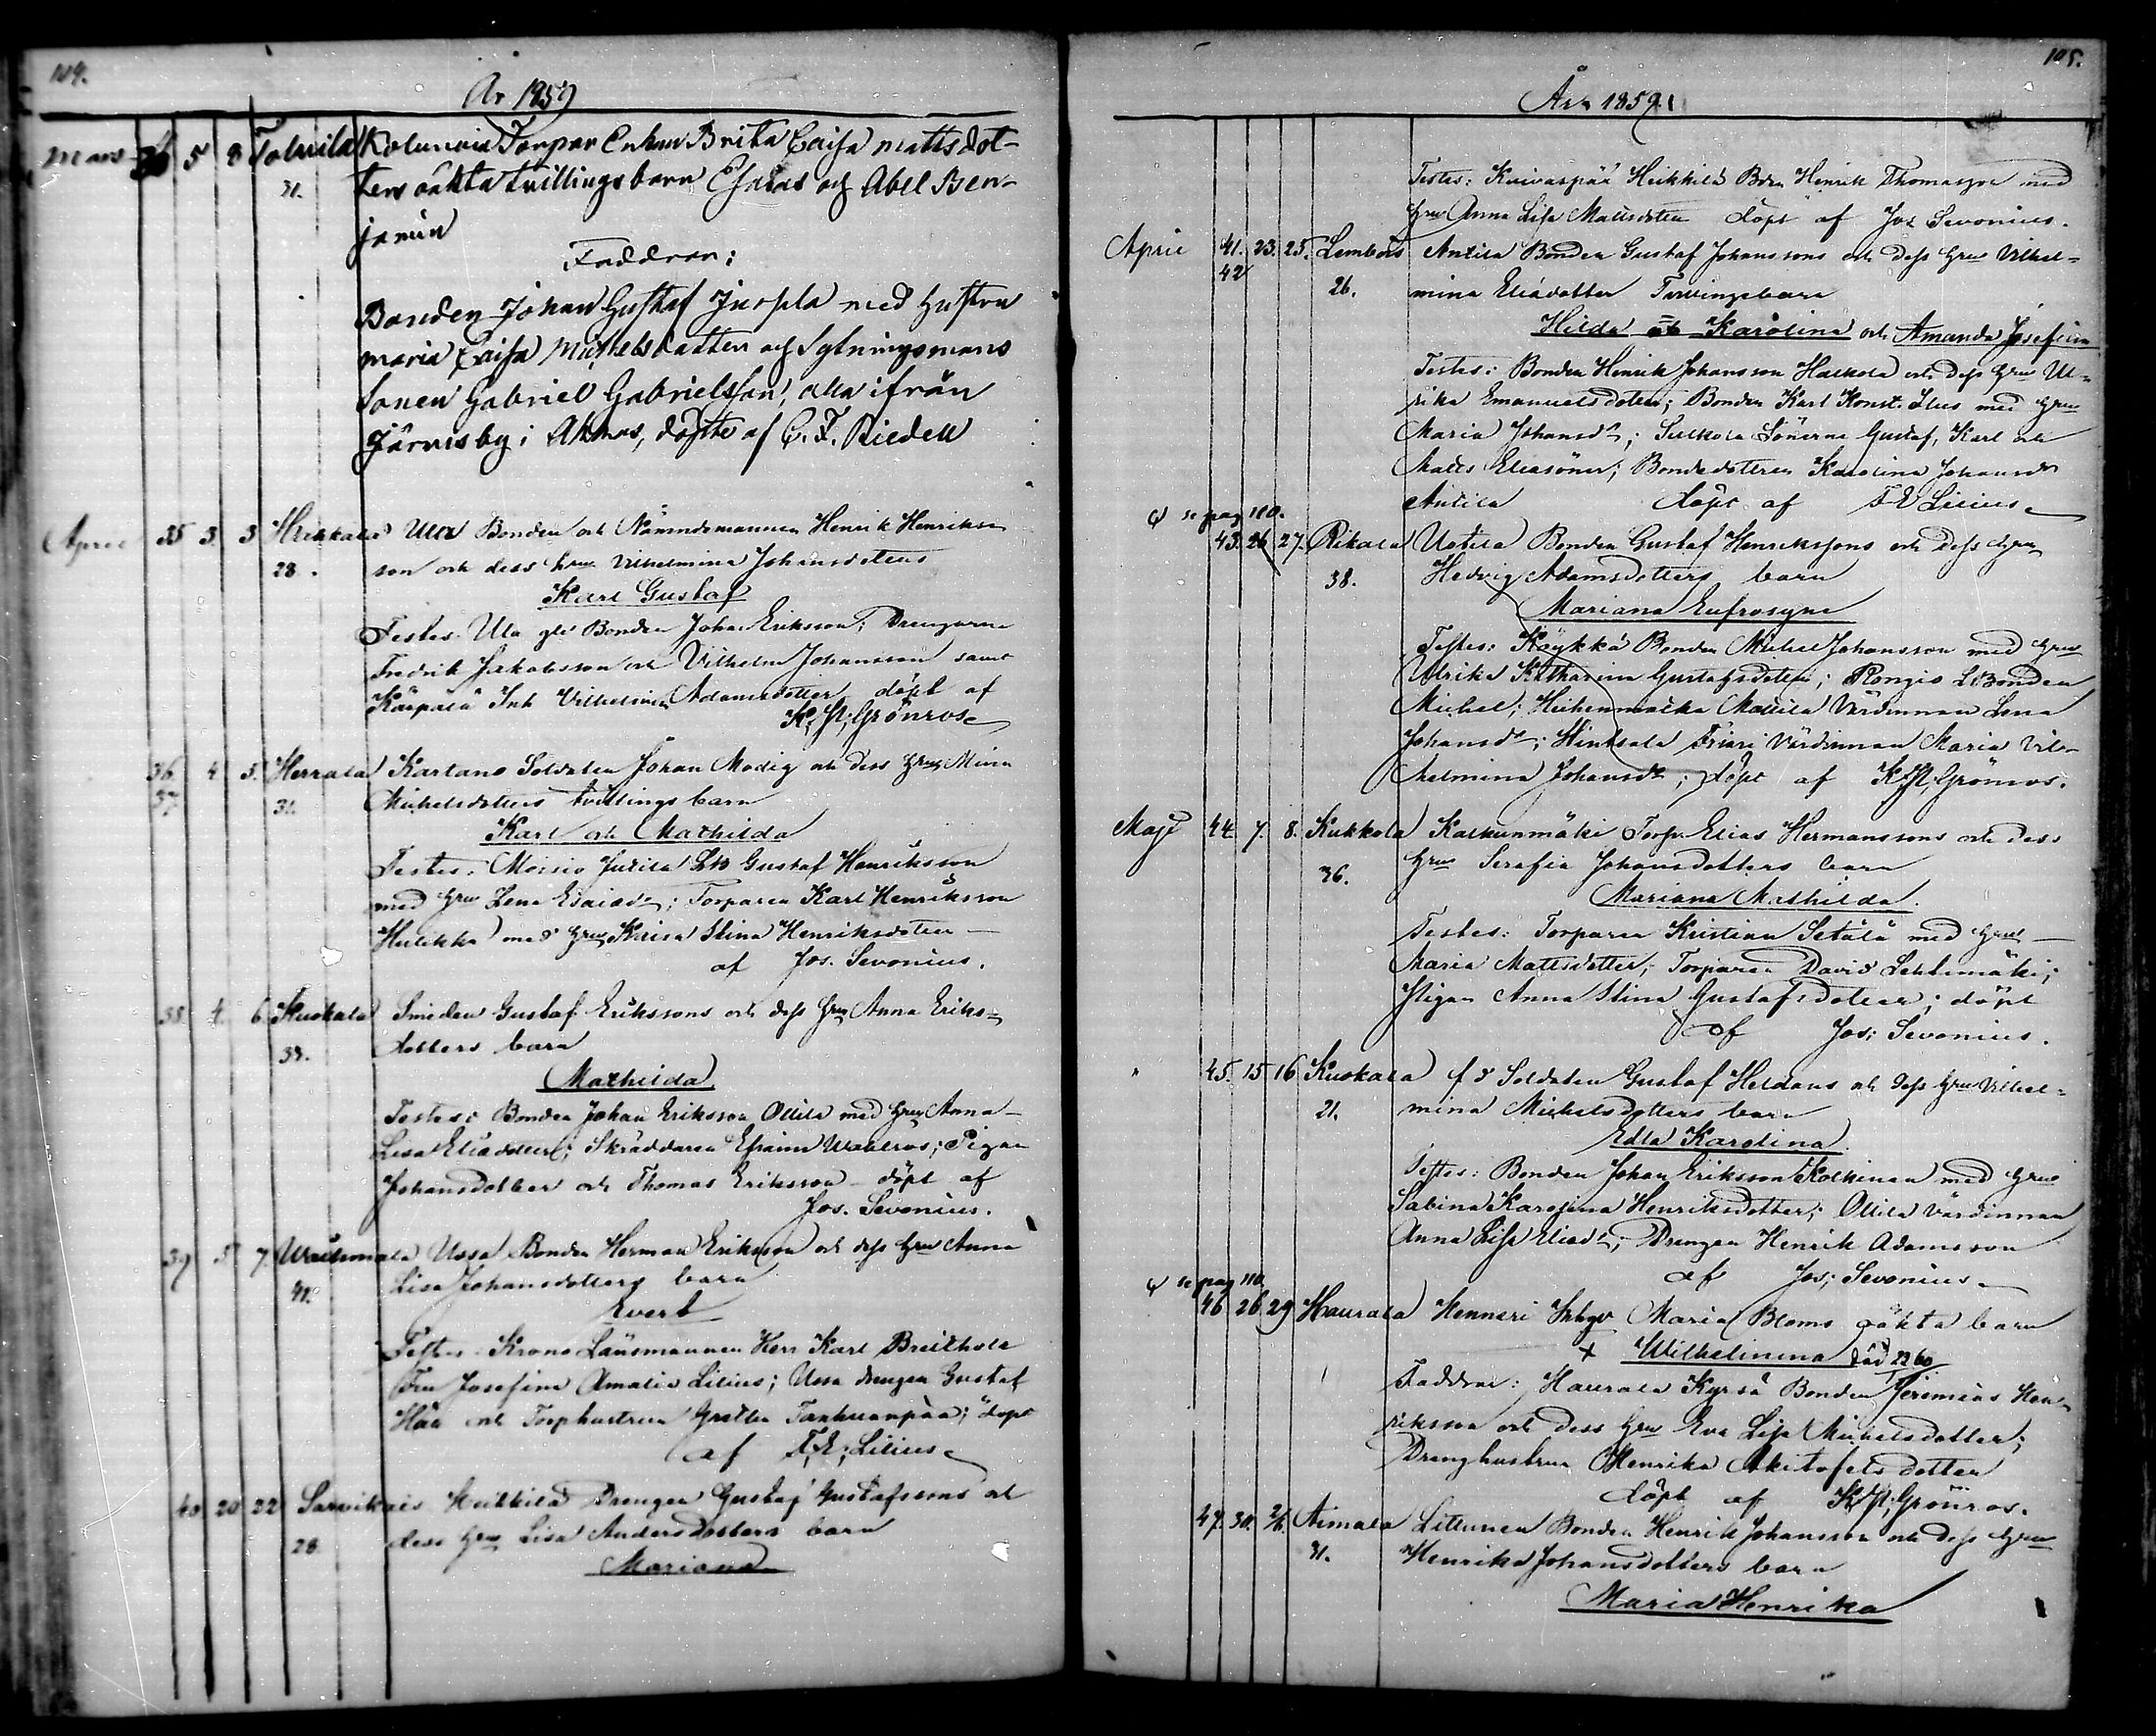 104.
År 1859
Mars 5 8 Toluila Kolunoia Torpar Enkan Brita Caisa Mattsdot-
31. ters oäkta tvillingsbarn Esaias och Abel Ben-
jamin
Faddrar:
Bonden Johan Gustaf Juopla med Hustru
Maria Caisa Michelsdotter och Sytningsmans
Sonen Gabriel Gabrielsson, alla ifrån
Järnis by i Akkas, döpte af C. F. Riedell
April 35 3. 3 Hukkala Ulla Bonden och Nämndemannen Henrik Henriks-
28. son och dess Hru Vilhelmina Johansdotters
Karl Gustaf
Testes: Ula gle Bonden Johan Eriksson; Drengarne
Fredrik Jakobsson och Vilhelm Johansson samt
Kärpälä Inh Vilhelmina Adamsdotter döpt af
K. H. Grönros
36. 4 5. Herrala Kartano Soldaten Johan Modig och dess Hru Mina
37. 31. Michelsdotters tvillings barn
Karl och Mathilda
Testes: Moisio Jutila Gustaf Henriksson
med Hru Lena Esaiadr; Torparen Karl Henriksson
Hulikka med Hru Kaisa Stina Henriksdotter
af Jos. Sevonius.
38 4. 6 Kuokala Smeden Gustaf Erikssons och dess Hru Anna Eriks-
33. dotters barn
Mathilda
Testes: Bonden Johan Eriksson Ollila med Hru Anna
Lisa Eliadotter; Skräddaren Efraim Wahlros; Pigan
Johansdotter och Thomas Eriksson döpt af
Jos. Sevonius.
39 5 7. Ussa Bonden Herman Eriksson och dess Hru Anna
41. Lisa Johansdotters barn
Evert
Testes: Krono Länsmannen Herr Karl Breitholz
Fru Josefina Amalia Lilius; Ussa drengen Gustaf
och Torphustrun Tanhuanpää; döpt
af F. E. Lilius
40 20 22 Sarvikais Heikkilä Drengen Gustaf Gustafssons och
28. dess Hru Lisa Andersdotters barn
Mariana
105.
År 1859.
Testes: Knivaspää Heikkilä Bden Henrik Thomasson med
Hru Anna Lisa Mattsdotter döpt af Jos Sevonius.
April 41. 23. 25. Lembois Anttila Bonden Gustaf Johanssons och dess Hru Vilhel-
42 26. mina Eliædotter Tvillingsbarn
Hilda Karolina och Amanda Josefina
Testes: Bonden Henrik Johansson Halkola och dess Hru Ul-
rika Emanuelsdotter; Bonden Karl Konst. med Hru
Maria Johansdr; Sönerne Gustaf, Karl och
Matts Eliasöner; Bondedottren Karolina Johansdr
Anttila döpt af F E Lilius
se pag 110.
43. 26 27. Rikala Uotila Bonden Gustaf Henrikssons och dess Hru
38. Hedvig Adamsdotters barn
Mariana Eufrosyne
Testes: Köykkä Bonden Michel Johansson med Hru
Ulrika Katharina Gustafsdotter; Rongio L Bonden
Michel; Mattila Värdinnan Lena
Johansdr; Hintsala Friari Värdinnan Maria Vil-
helmina Johansdr; döpt af K. H. Grönros.
Maji 44. 7. 8. Kukkola Kalkunmäki Torp. Elias Hermanssons och dess
36. Hru Serafia Johansdotters barn
Mariana Mathilda.
Testes: Torparen Kristian Setälä med Hru
Maria Mattsdotter; Torparen David Lehtimäki;
Pigan Anna Stina Gustafsdotter; döpt
af Jos. Sevonius.
" 45. 15 16 Kuokala f d Soldaten Gustaf Heldans och dess Hru Vilhel-
21. mina Michelsdotters barn
Edla Karolina.
Testes: Bonden Johan Eriksson Kolkinen med Hru
Sabina Karolina Henriksdotter; Ollila Värdinnan
Anna Lisa Eliadr; Drengen Henrik Adamsson
af Jos. Sevonius.
se pag 110.
46 26 29 Haurala Henneri Inhyr Maria Bloms oäkta barn
+ Wilhelmina död 60
Faddrar: Haurala Kyrsä Bonden Jeremias Hen-
riksson och dess Hru Eva Lisa Michelsdotter;
Drenghustrun Henrika Akitofelsdotter
döpt af K. H. Grönros.
47. 30. 2/6. Aimala Littunen Bonden Henrik Johansson och dess Hru
31. Henrika Johansdotters barn
Maria Henrika